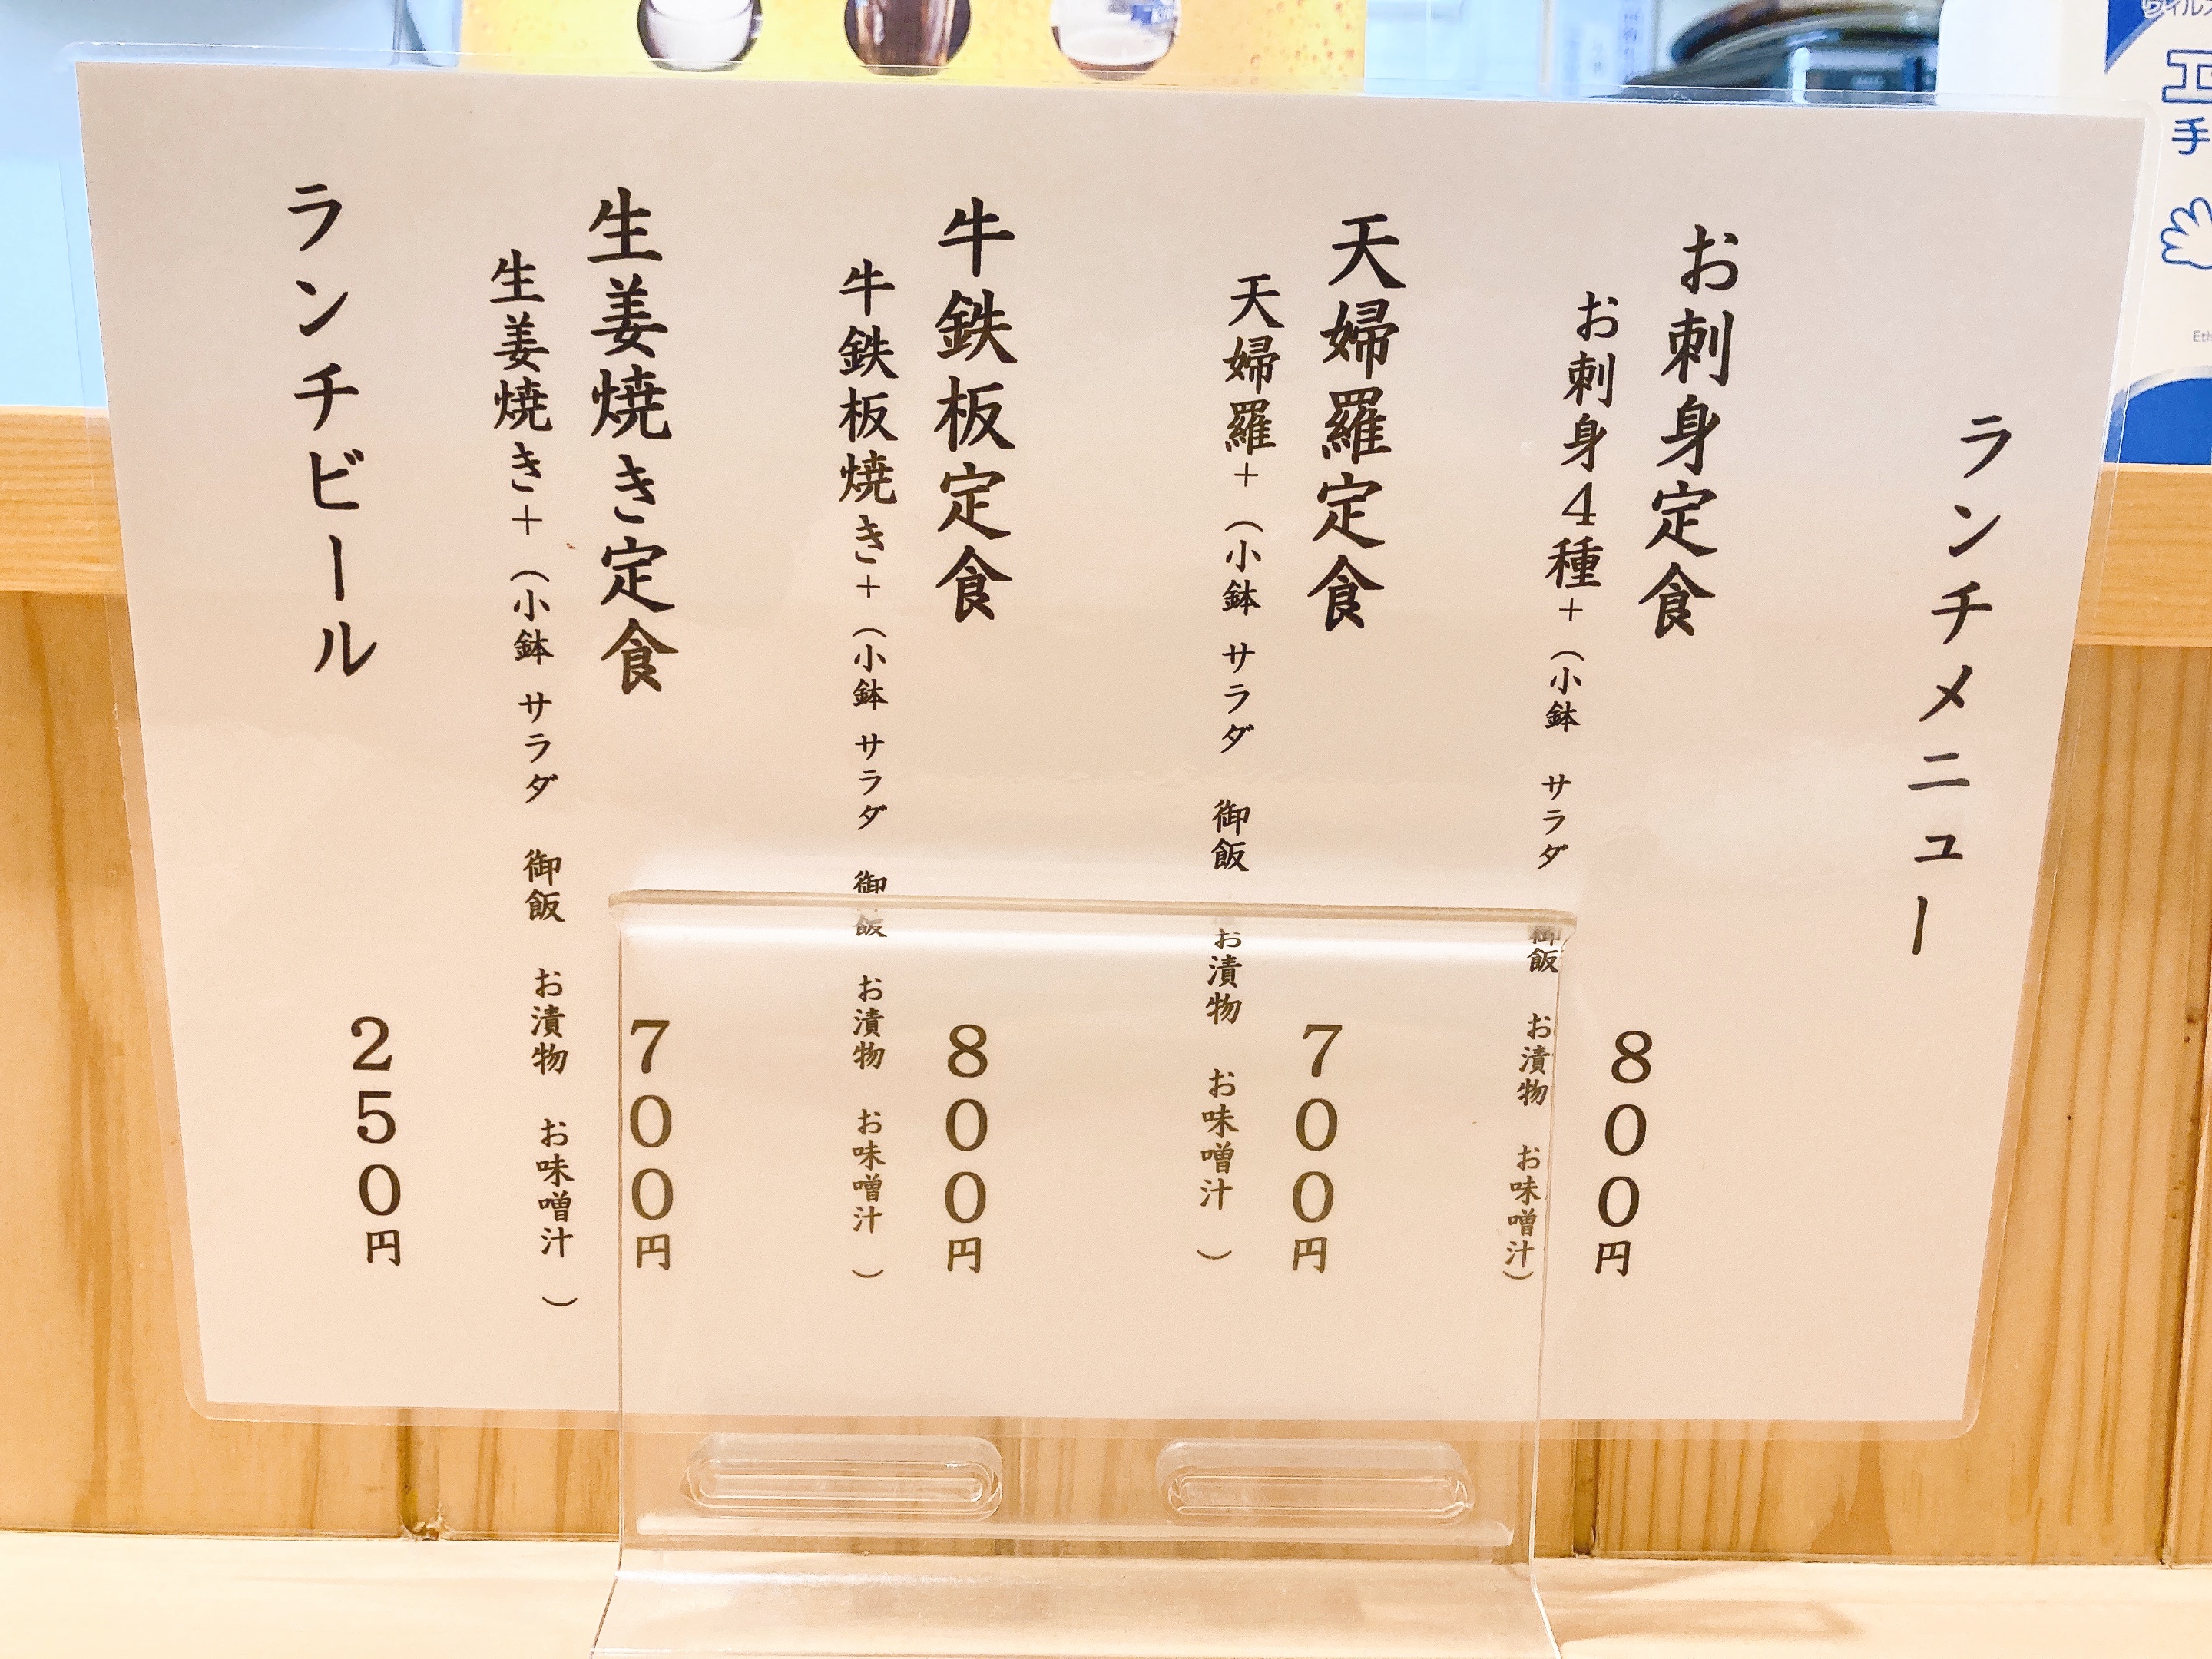 ランチメニュー
お刺身定食 800円
お刺身4種+(小鉢 サラダ 御飯 お漬物 お味噌汁)
天婦羅定食 700円
天婦羅+(小鉢 サラダ 御飯 お漬物 お味噌汁)
牛鉄板定食 800円
牛鉄板焼き+(小鉢 サラダ 御飯 お漬物 お味噌汁)
生姜焼き定食 700円
生姜焼き+(小鉢 サラダ 御飯 お漬物 お味噌汁)
ランチビール 250円
エ
手
Eth